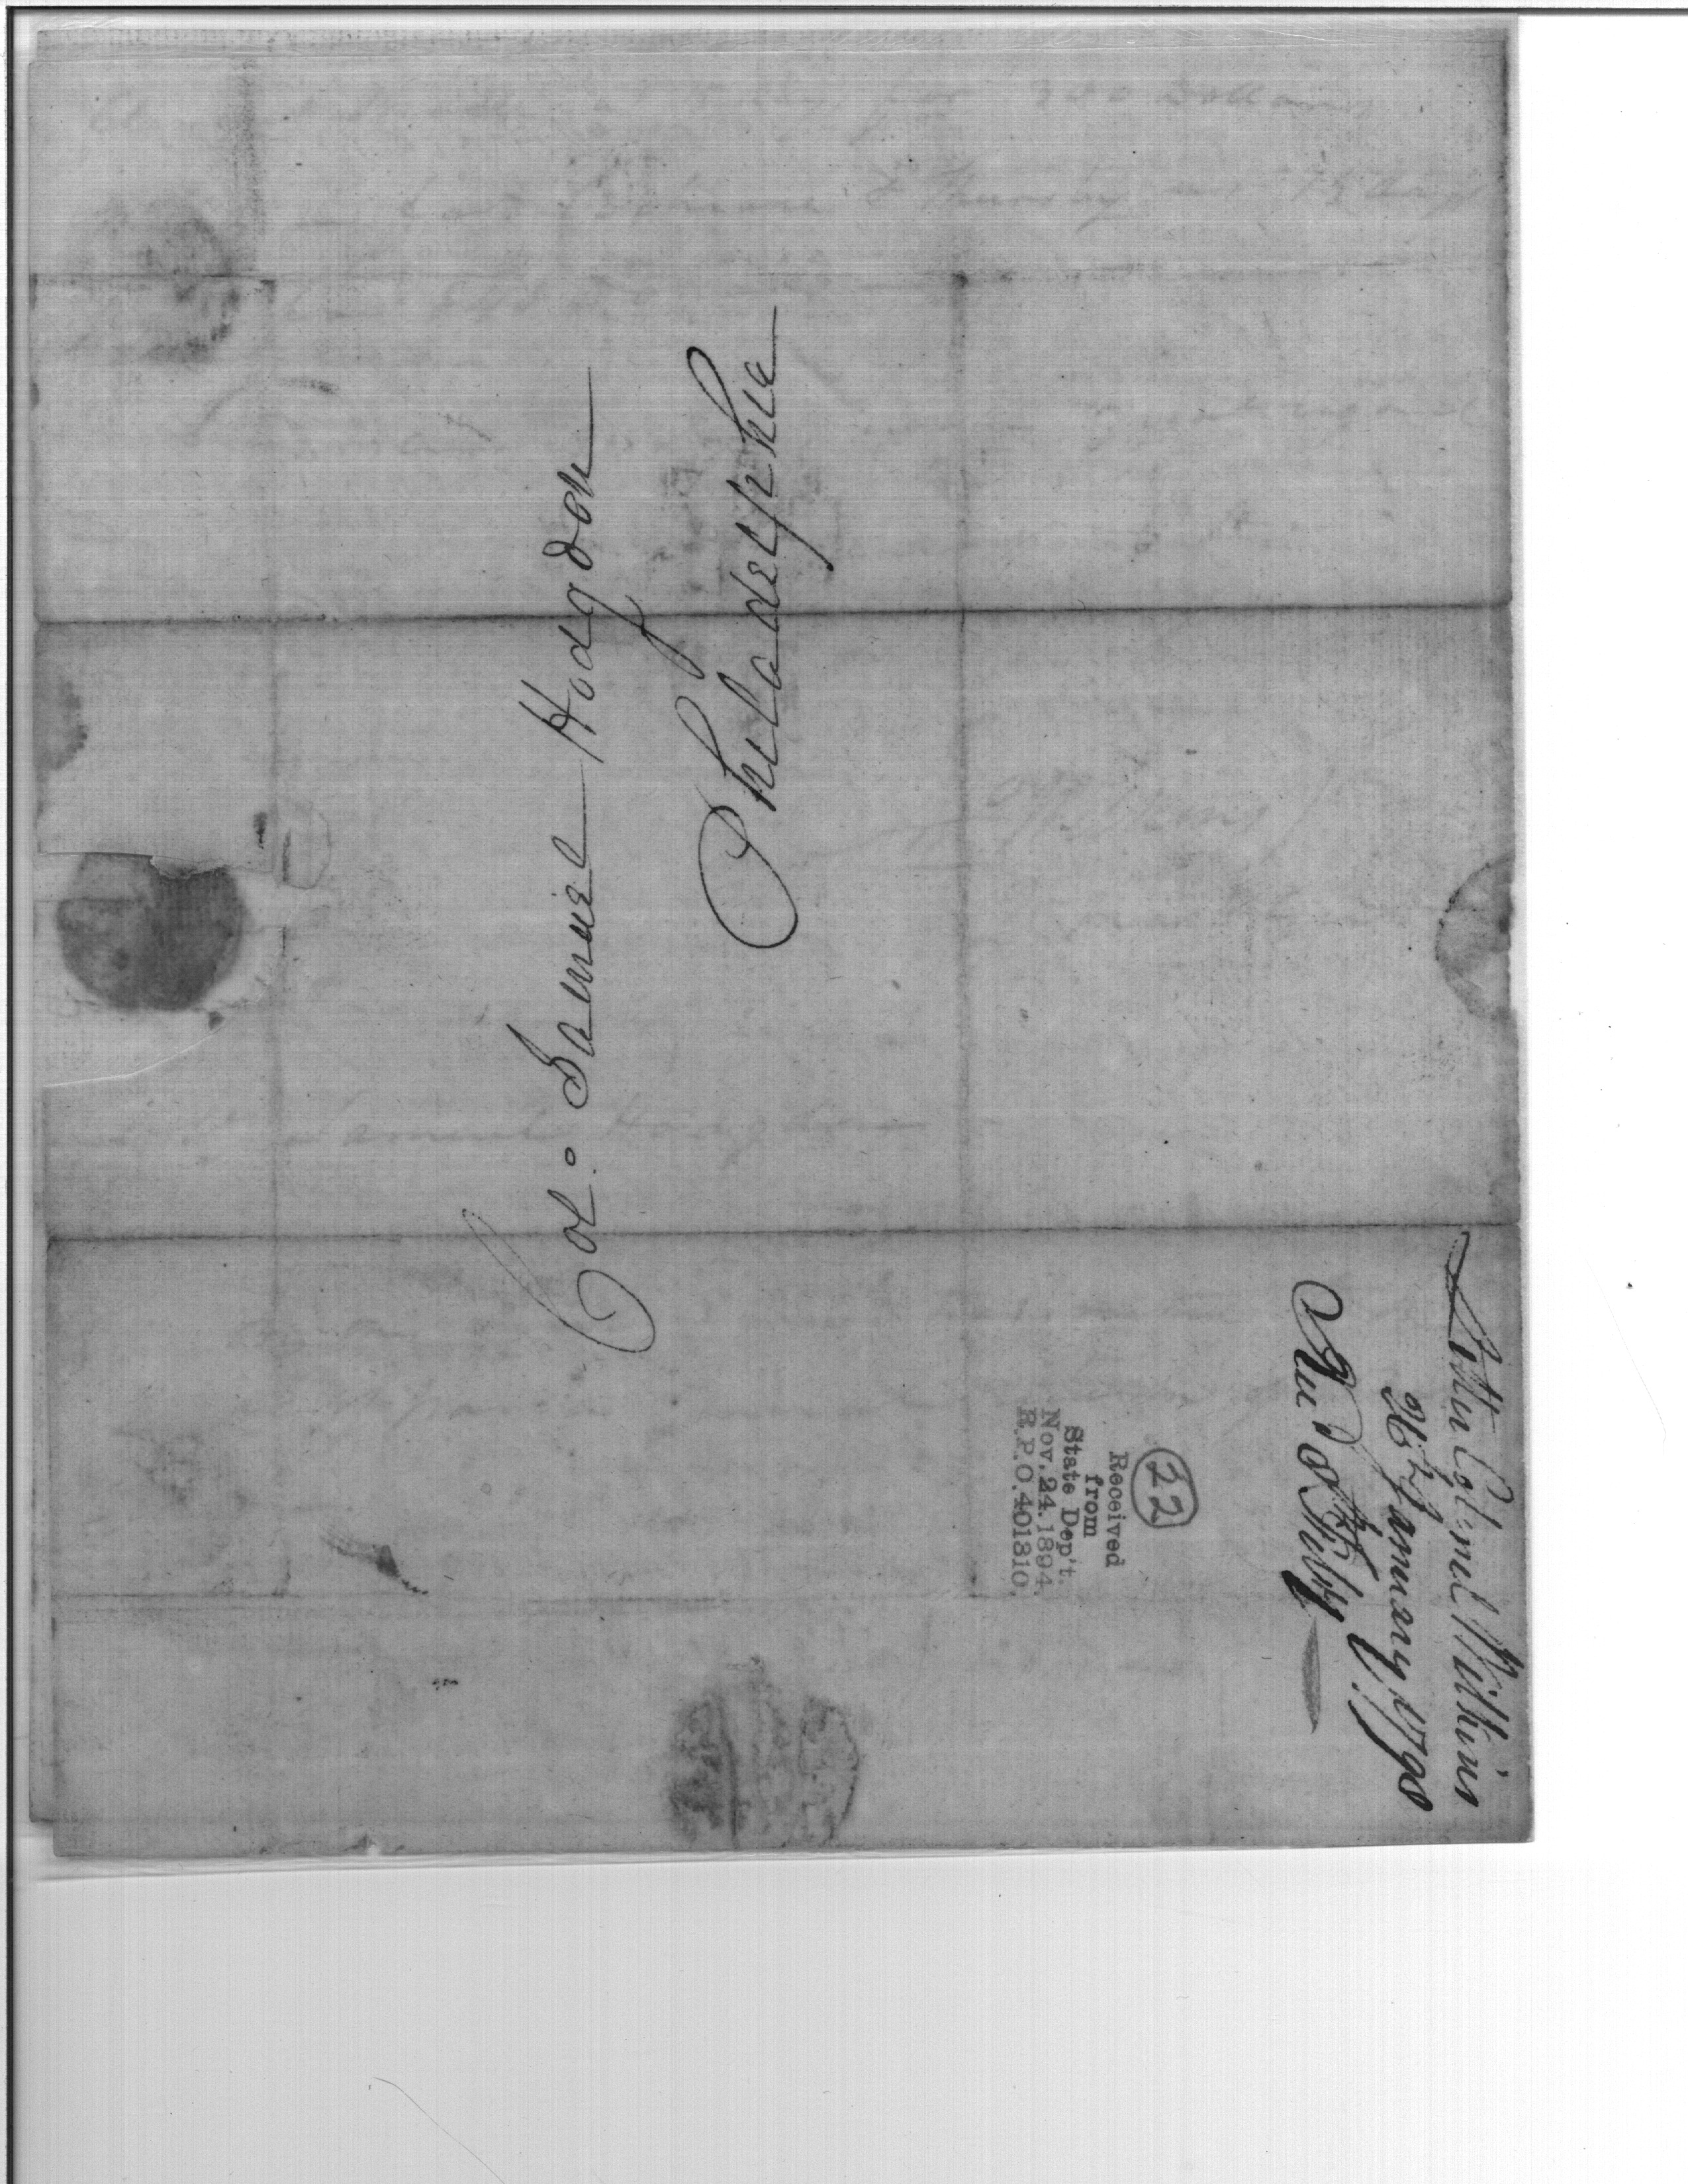 Col: Samuel Hodgdon
Philadelphia
Letter Colonel Wilkins
26th January 1798
Rec'd 8th Feby
22
Received
from
State Dep't.
Nov. 24. 1894.
R.P.O. 401310.